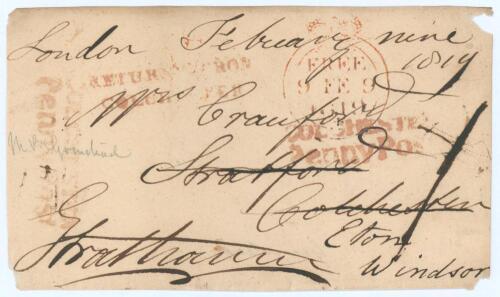 London February nine
1819
RETURNED FROM
COLCHESTER
FREE
9 FE 9
1819
Mrs Crauford
COLCHESTER
Penny Post
Stratford
Colchester
Eton
Windsor
Strathaven